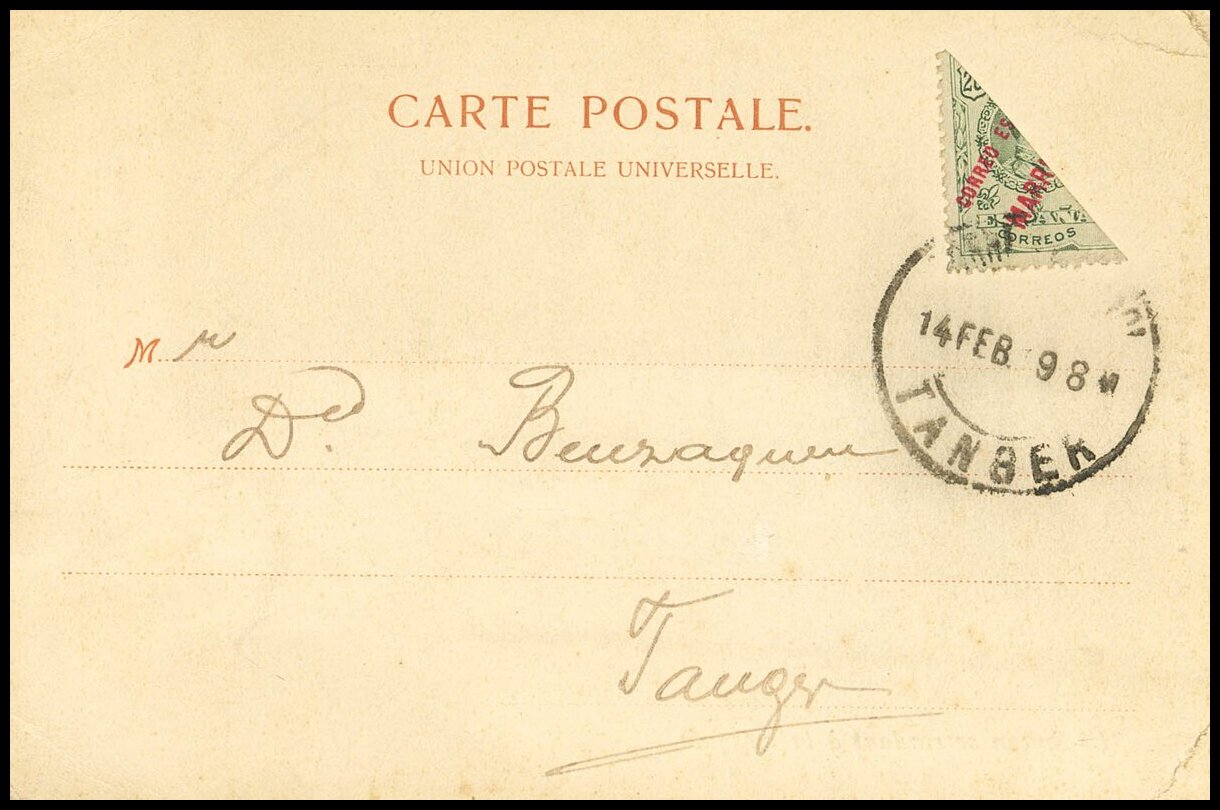 CARTE POSTALE.
UNION POSTALE UNIVERSELLE.
CORREO ES
MARR
CORREOS
14 FEB. 98 M
TANGER
M r
Dr. Benzaquen
Tanger